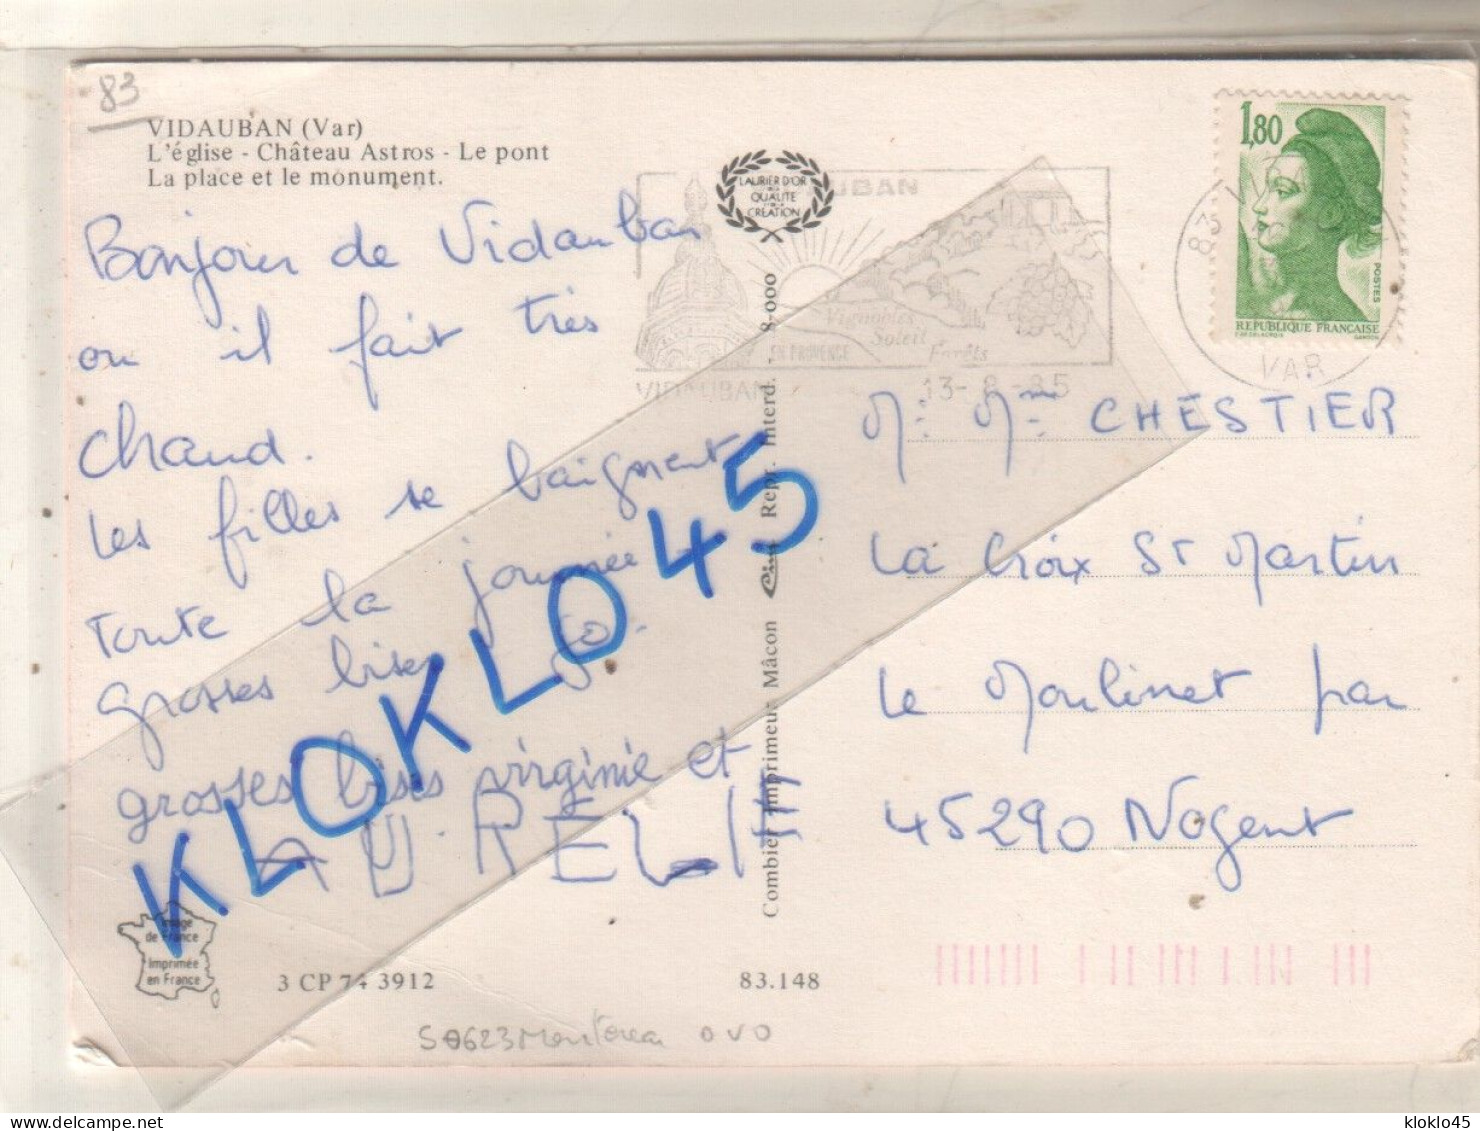 83
VIDAUBAN (Var)
L'église - Château Astros - Le pont
La place et le monument.
LAURIER D'OR
QUALITÉ
CRÉATION
UBAN
Vignobles
Soleil
Forêts
EN PROVENCE
VIDAUBAN
13-8-85
83
VAR
1,80
POSTES
REPUBLIQUE FRANÇAISE
Bonjour de Vidauban
ou il fait très
chaud.
Les filles se baignent
toute la journée
grosses bises
grosses bises virginie et
AURELIE
KLOKLO45
Combier Imprimeur Mâcon Cim Repr. Interd. 8-000
M. Mme CHESTIER
La Croix St Martin
Le Moulinet par
45290 Nogent
Image
de France
Imprimée
en France
3 CP 74 3912
83.148
kloklo45